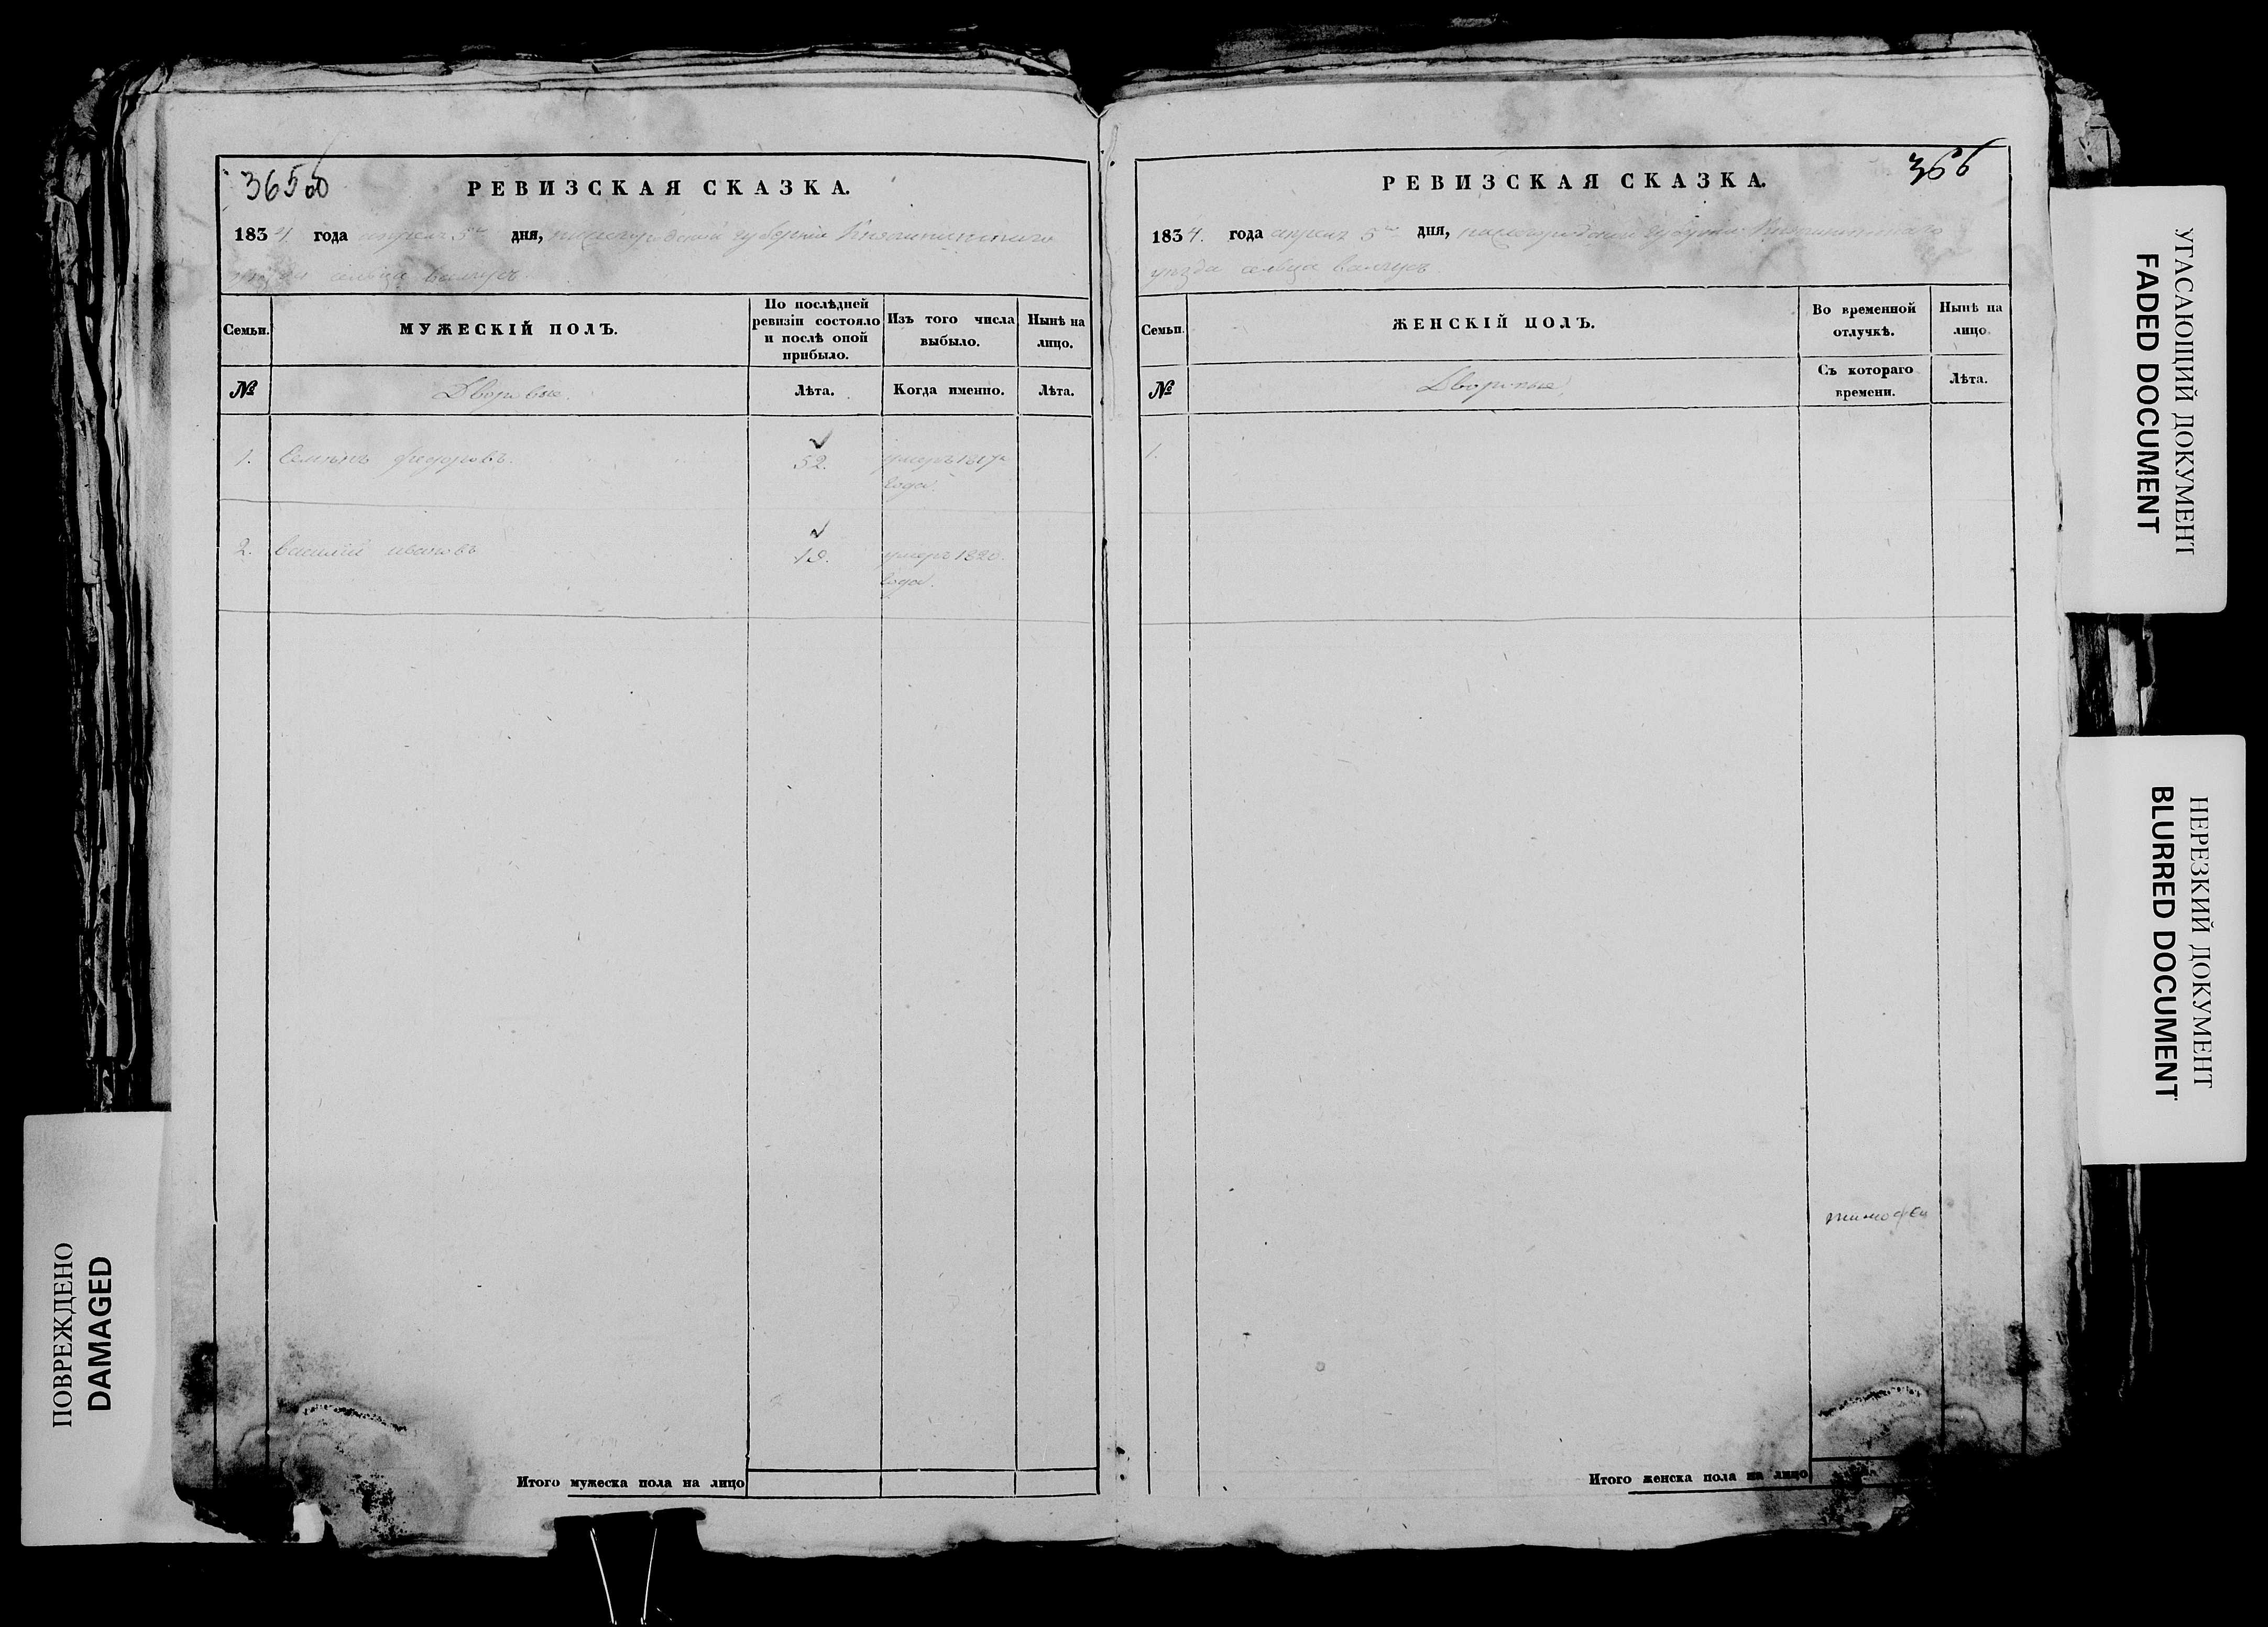 365 об
РЕВИЗСКАЯ СКАЗКА.
1834 года апреля 5го дня, нижегородской губернии Княгининскаго
уезда сельца валчусъ
Семьи.
МУЖЕСКІЙ ПОЛЪ.
По послѣдней
ревизіи состояло
и послѣ оной
прибыло.
Изъ того числа
выбыло.
Нынѣ на
лицо.
№
Дворовые.
Лѣта.
Когда именно.
Лѣта.
1. Семенъ федоровъ. 52. умеръ 1817го
года.
2. василий ивановъ умеръ 1820.
года.
Итого мужеска пола на лицо
366
РЕВИЗСКАЯ СКАЗКА.
1834. года апреля 5го дня, нижегородской губернии Княгининскаго
уезда сельца валчусъ
Семьи.
ЖЕНСКІЙ ПОЛЪ.
Во временной
отлучкѣ.
Нынѣ на
лицо.
№
Дворовые
Съ котораго
времени.
Лѣта.
1.
тимофеи
Итого женска пола на лицо
УГАСАЮЩИЙ ДОКУМЕНТ
FADED DOCUMENT
НЕРЕЗКИЙ ДОКУМЕНТ
BLURRED DOCUMENT
ПОВРЕЖДЕНО
DAMAGED